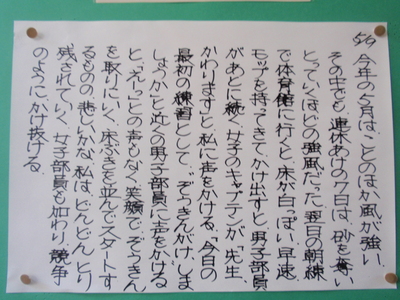 5/9 今年の5月は、ことのほか風が強い。
その中でも、連休あけの7日は、砂を奪い
とっていくほどの強風だった。翌日の朝練
で体育館に行くと、床が白っぽい。早速、
モップを持ってきて、かけ出すと、男子部員
があとに続く。女子のキャプテンが「先生、
かわります」と、私に声をかける。「今日の
最初の練習として、ぞうきんがけ、しま
しょうか」と近くの男子部員に声をかける
と、「えーっ」との声もなく、笑顔で、ぞうきん
を取りにいく。床ぶきを並んでスタートす
るものの、悲しいかな、私は、どんどん、とり
残されていく。女子部員も加わり、競争
のように、かけ抜ける。